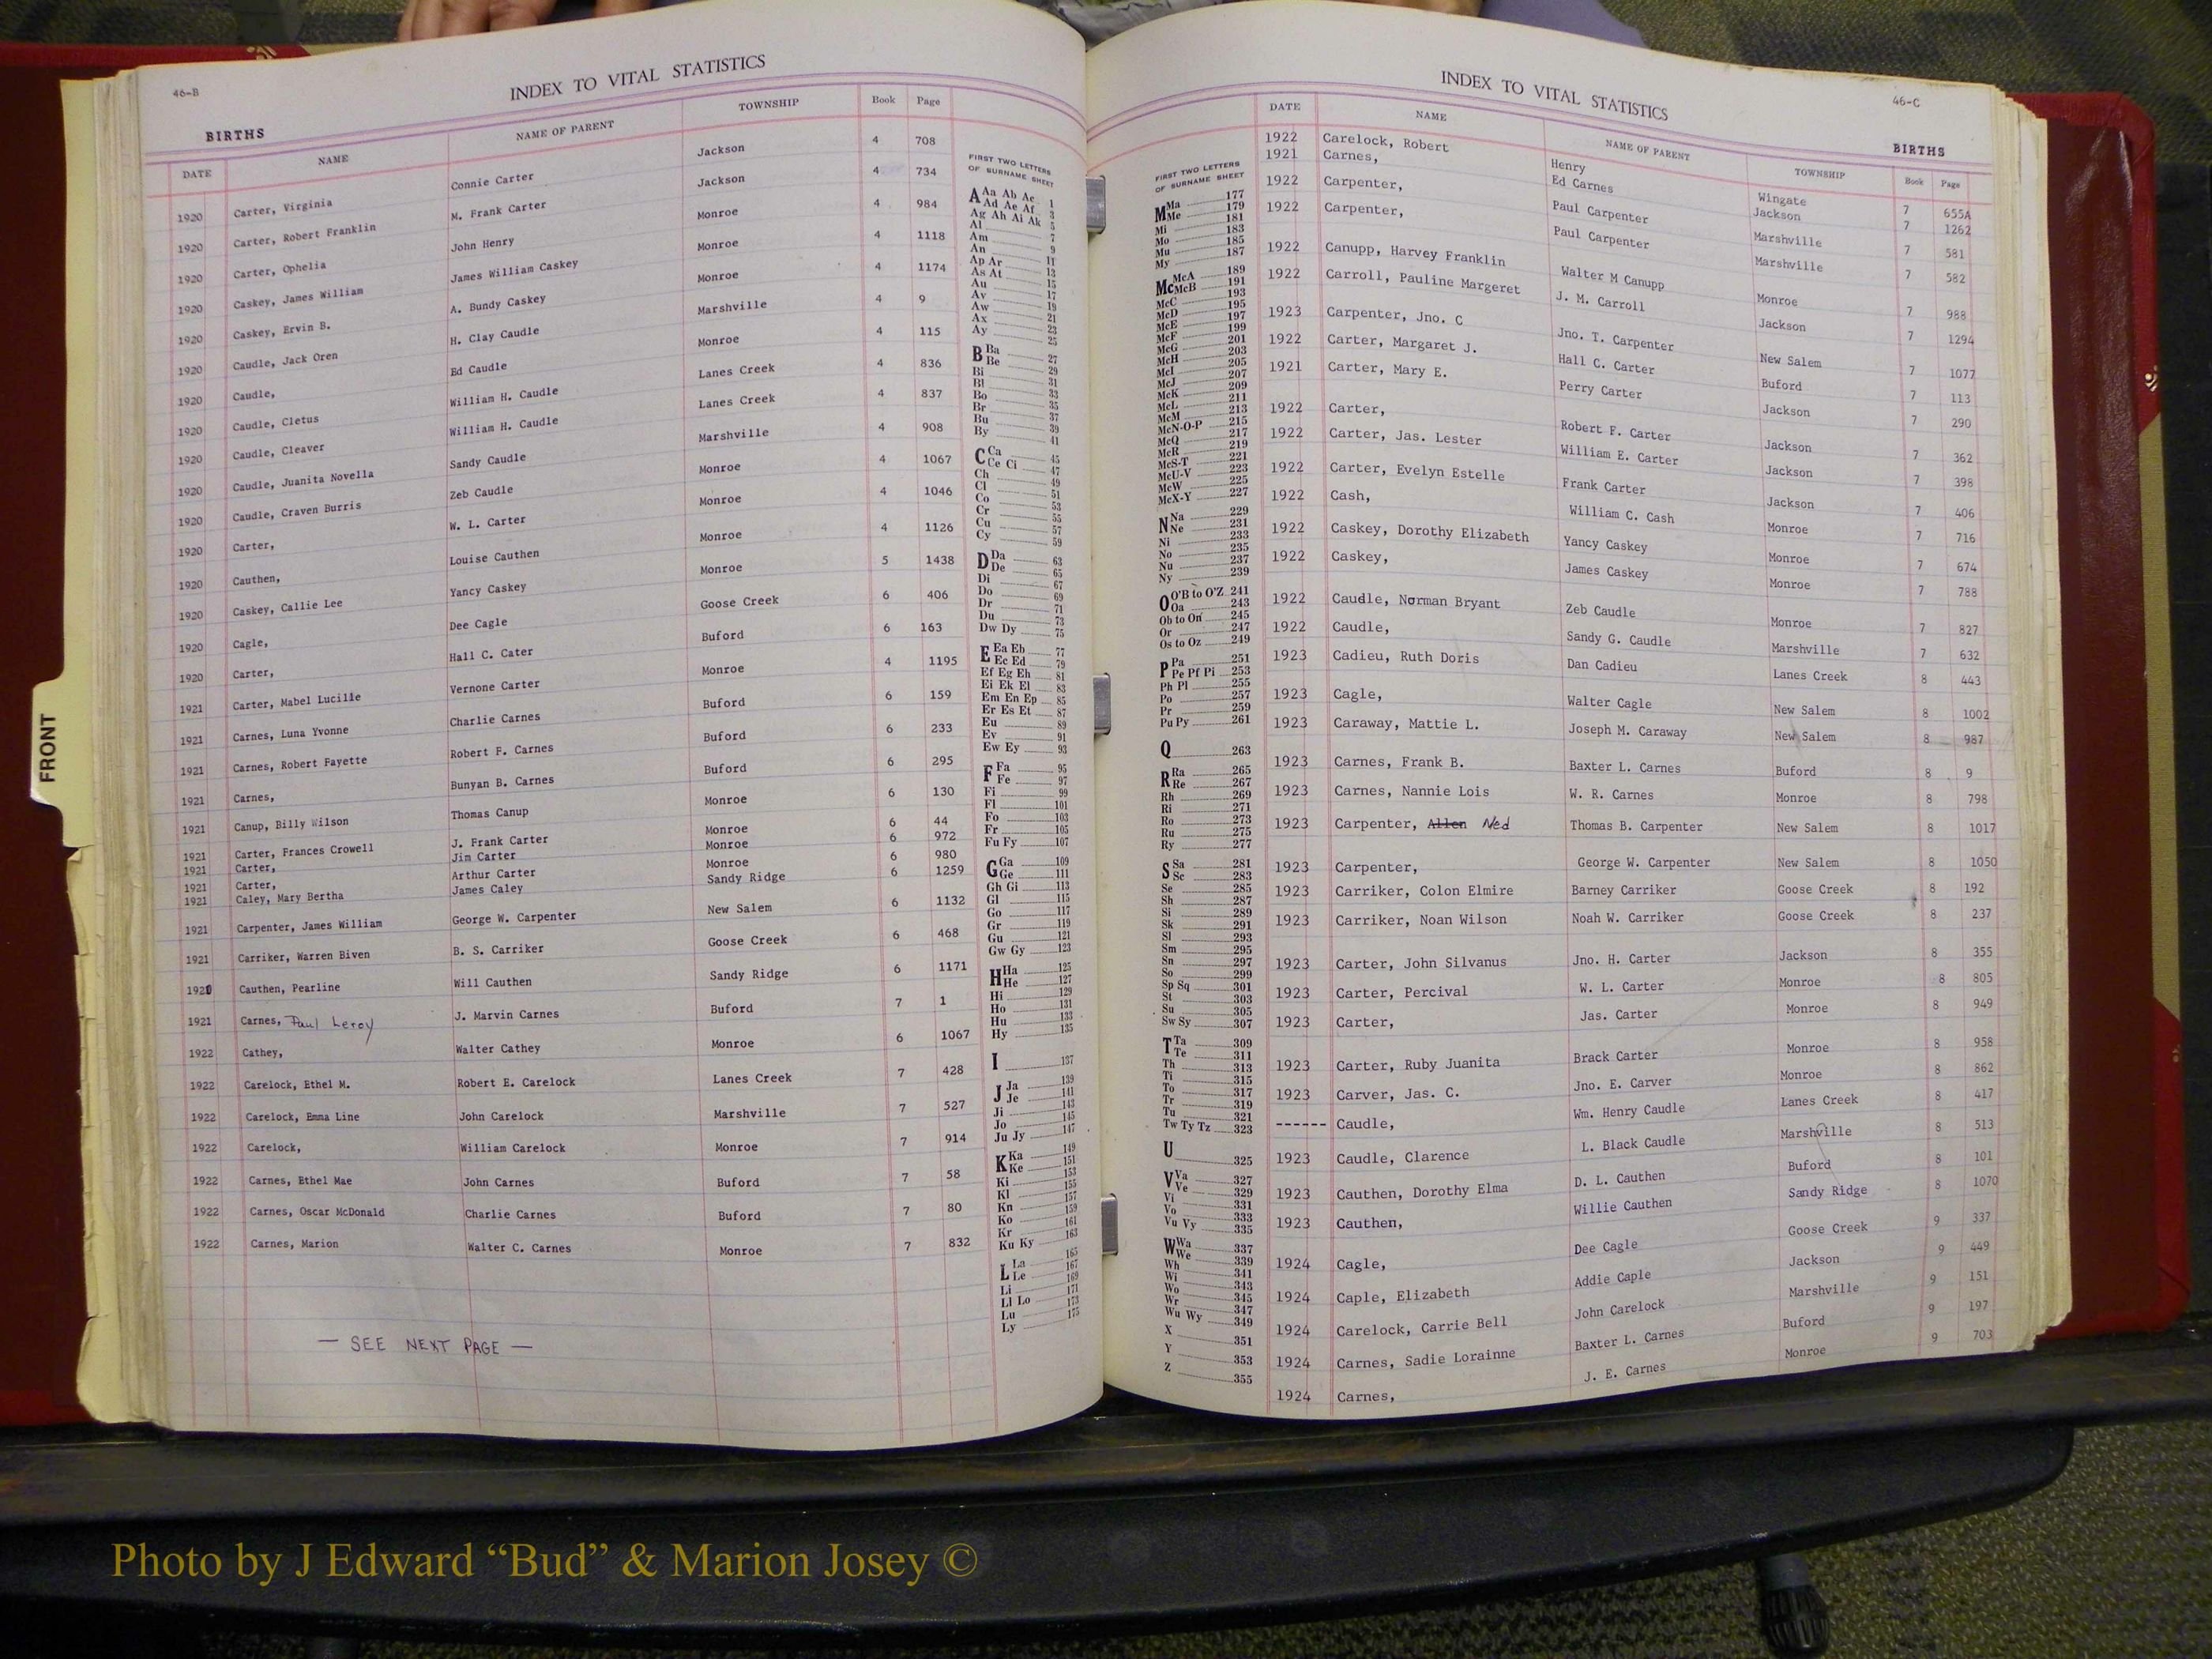 46-B
INDEX TO VITAL STATISTICS
BIRTHS
DATE NAME NAME OF PARENT TOWNSHIP Book Page
1920 Carter, Virginia Connie Carter Jackson 4 708
1920 Carter, Robert Franklin M. Frank Carter Jackson 4 734
1920 Carter, Ophelia John Henry Monroe 4 984
1920 Caskey, James William James William Caskey Monroe 4 1118
1920 Caskey, Ervin B. A. Bundy Caskey Monroe 4 1174
1920 Caudle, Jack Oren H. Clay Caudle Marshville 4 9
1920 Caudle, Ed Caudle Monroe 4 115
1920 Caudle, Cletus William H. Caudle Lanes Creek 4 836
1920 Caudle, Cleaver William H. Caudle Lanes Creek 4 837
1920 Caudle, Juanita Novella Sandy Caudle Marshville 4 908
1920 Caudle, Craven Burris Zeb Caudle Monroe 4 1067
1920 Carter, W. L. Carter Monroe 4 1046
1920 Cauthen, Louise Cauthen Monroe 4 1126
1920 Caskey, Callie Lee Yancy Caskey Monroe 5 1438
1920 Cagle, Dee Cagle Goose Creek 6 406
1920 Carter, Hall C. Cater Buford 6 163
1921 Carter, Mabel Lucille Vernone Carter Monroe 4 1195
1921 Carnes, Luna Yvonne Charlie Carnes Buford 6 159
1921 Carnes, Robert Fayette Robert F. Carnes Buford 6 233
1921 Carnes, Bunyan B. Carnes Buford 6 295
1921 Canup, Billy Wilson Thomas Canup Monroe 6 130
1921 Carter, Frances Crowell J. Frank Carter Monroe 6 44
1921 Carter, Jim Carter Monroe 6 972
1921 Carter, Arthur Carter Monroe 6 980
1921 Caley, Mary Bertha James Caley Sandy Ridge 6 1259
1921 Carpenter, James William George W. Carpenter New Salem 6 1132
1921 Carriker, Warren Biven B. S. Carriker Goose Creek 6 468
1920 Cauthen, Pearline Will Cauthen Sandy Ridge 6 1171
1921 Carnes, Paul Leroy J. Marvin Carnes Buford 7 1
1922 Cathey, Walter Cathey Monroe 6 1067
1922 Carelock, Ethel M. Robert E. Carelock Lanes Creek 7 428
1922 Carelock, Emma Line John Carelock Marshville 7 527
1922 Carelock, William Carelock Monroe 7 914
1922 Carnes, Ethel Mae John Carnes Buford 7 58
1922 Carnes, Oscar McDonald Charlie Carnes Buford 7 80
1922 Carnes, Marion Walter C. Carnes Monroe 7 832
— SEE NEXT PAGE —
FIRST TWO LETTERS
OF SURNAME SHEET
A Aa Ab Ac 1
Ad Ae Af 3
Ag Ah Ai Ak 5
Al 7
Am 9
An 11
Ap Ar 13
As At 15
Au 17
Av 19
Aw 21
Ax 23
Ay 25
B Ba 27
Be 29
Bi 31
Bl 33
Bo 35
Br 37
Bu 39
By 41
C Ca 45
Ce Ci 47
Ch 49
Cl 51
Co 53
Cr 55
Cu 57
Cy 59
D Da 63
De 65
Di 67
Do 69
Dr 71
Du 73
Dw Dy 75
E Ea Eb 77
Ec Ed 79
Ef Eg Eh 81
Ei Ek El 83
Em En Ep 85
Er Es Et 87
Eu 89
Ev 91
Ew Ey 93
F Fa 95
Fe 97
Fi 99
Fl 101
Fo 103
Fr 105
Fu Fy 107
G Ga 109
Ge 111
Gh Gi 113
Gl 115
Go 117
Gr 119
Gu 121
Gw Gy 123
H Ha 125
He 127
Hi 129
Ho 131
Hu 133
Hy 135
I 137
J Ja 139
Je 141
Ji 143
Jo 145
Ju Jy 147
K Ka 149
Ke 151
Ki 153
Kl 155
Kn 157
Ko 159
Kr 161
Ku Ky 163
L La 165
Le 167
Li 169
Ll Lo 171
Lu 173
Ly 175
FRONT
INDEX TO VITAL STATISTICS
46-C
BIRTHS
FIRST TWO LETTERS
OF SURNAME SHEET
M Ma 177
Me 179
Mi 181
Mo 183
Mu 185
My 187
Mc McA 189
McB 191
McC 193
McD 195
McE 197
McF 199
McG 201
McH 203
McI 205
McJ 207
McK 209
McL 211
McM 213
McN-O-P 215
McQ 217
McR 219
McS-T 221
McU-V 223
McW 225
McX-Y 227
N Na 229
Ne 231
Ni 233
No 235
Nu 237
Ny 239
O O'B to O'Z 241
Oa 243
Ob to On 245
Or 247
Os to Oz 249
P Pa 251
Pe Pf Pi 253
Ph Pl 255
Po 257
Pr 259
Pu Py 261
Q 263
R Ra 265
Re 267
Rh 269
Ri 271
Ro 273
Ru 275
Ry 277
S Sa 281
Sc 283
Se 285
Sh 287
Si 289
Sk 291
Sl 293
Sm 295
Sn 297
So 299
Sp Sq 301
St 303
Su 305
Sw Sy 307
T Ta 309
Te 311
Th 313
Ti 315
To 317
Tr 319
Tu 321
Tw Ty Tz 323
U 325
V Va 327
Ve 329
Vi 331
Vo 333
Vu Vy 335
W Wa 337
We 339
Wh 341
Wi 343
Wo 345
Wr 347
Wu Wy 349
X 351
Y 353
Z 355
DATE NAME NAME OF PARENT TOWNSHIP Book Page
1922 Carelock, Robert Henry Wingate 7 655A
1921 Carnes, Ed Carnes Jackson 7 1262
1922 Carpenter, Paul Carpenter Marshville 7 581
1922 Carpenter, Paul Carpenter Marshville 7 582
1922 Canupp, Harvey Franklin Walter M Canupp Monroe 7 988
1922 Carroll, Pauline Margeret J. M. Carroll Jackson 7 1294
1923 Carpenter, Jno. C Jno. T. Carpenter New Salem 7 1077
1922 Carter, Margaret J. Hall C. Carter Buford 7 113
1921 Carter, Mary E. Perry Carter Jackson 7 290
1922 Carter, Robert F. Carter Jackson 7 362
1922 Carter, Jas. Lester William E. Carter Jackson 7 398
1922 Carter, Evelyn Estelle Frank Carter Jackson 7 406
1922 Cash, William C. Cash Monroe 7 716
1922 Caskey, Dorothy Elizabeth Yancy Caskey Monroe 7 674
1922 Caskey, James Caskey Monroe 7 788
1922 Caudle, Norman Bryant Zeb Caudle Monroe 7 827
1922 Caudle, Sandy G. Caudle Marshville 7 632
1923 Cadieu, Ruth Doris Dan Cadieu Lanes Creek 8 443
1923 Cagle, Walter Cagle New Salem 8 1002
1923 Caraway, Mattie L. Joseph M. Caraway New Salem 8 987
1923 Carnes, Frank B. Baxter L. Carnes Buford 8 9
1923 Carnes, Nannie Lois W. R. Carnes Monroe 8 798
1923 Carpenter, Allen Ned Thomas B. Carpenter New Salem 8 1017
1923 Carpenter, George W. Carpenter New Salem 8 1050
1923 Carriker, Colon Elmire Barney Carriker Goose Creek 8 192
1923 Carriker, Noan Wilson Noah W. Carriker Goose Creek 8 237
1923 Carter, John Silvanus Jno. H. Carter Jackson 8 355
1923 Carter, Percival W. L. Carter Monroe 8 805
1923 Carter, Jas. Carter Monroe 8 949
1923 Carter, Ruby Juanita Brack Carter Monroe 8 958
1923 Carver, Jas. C. Jno. E. Carver Monroe 8 862
------ Caudle, Wm. Henry Caudle Lanes Creek 8 417
1923 Caudle, Clarence L. Black Caudle Marshville 8 513
1923 Cauthen, Dorothy Elma D. L. Cauthen Buford 8 101
1923 Cauthen, Willie Cauthen Sandy Ridge 8 1070
1924 Cagle, Dee Cagle Goose Creek 9 337
1924 Caple, Elizabeth Addie Caple Jackson 9 449
1924 Carelock, Carrie Bell John Carelock Marshville 9 151
1924 Carnes, Sadie Lorainne Baxter L. Carnes Buford 9 197
1924 Carnes, J. E. Carnes Monroe 9 703
Photo by J Edward “Bud” & Marion Josey ©